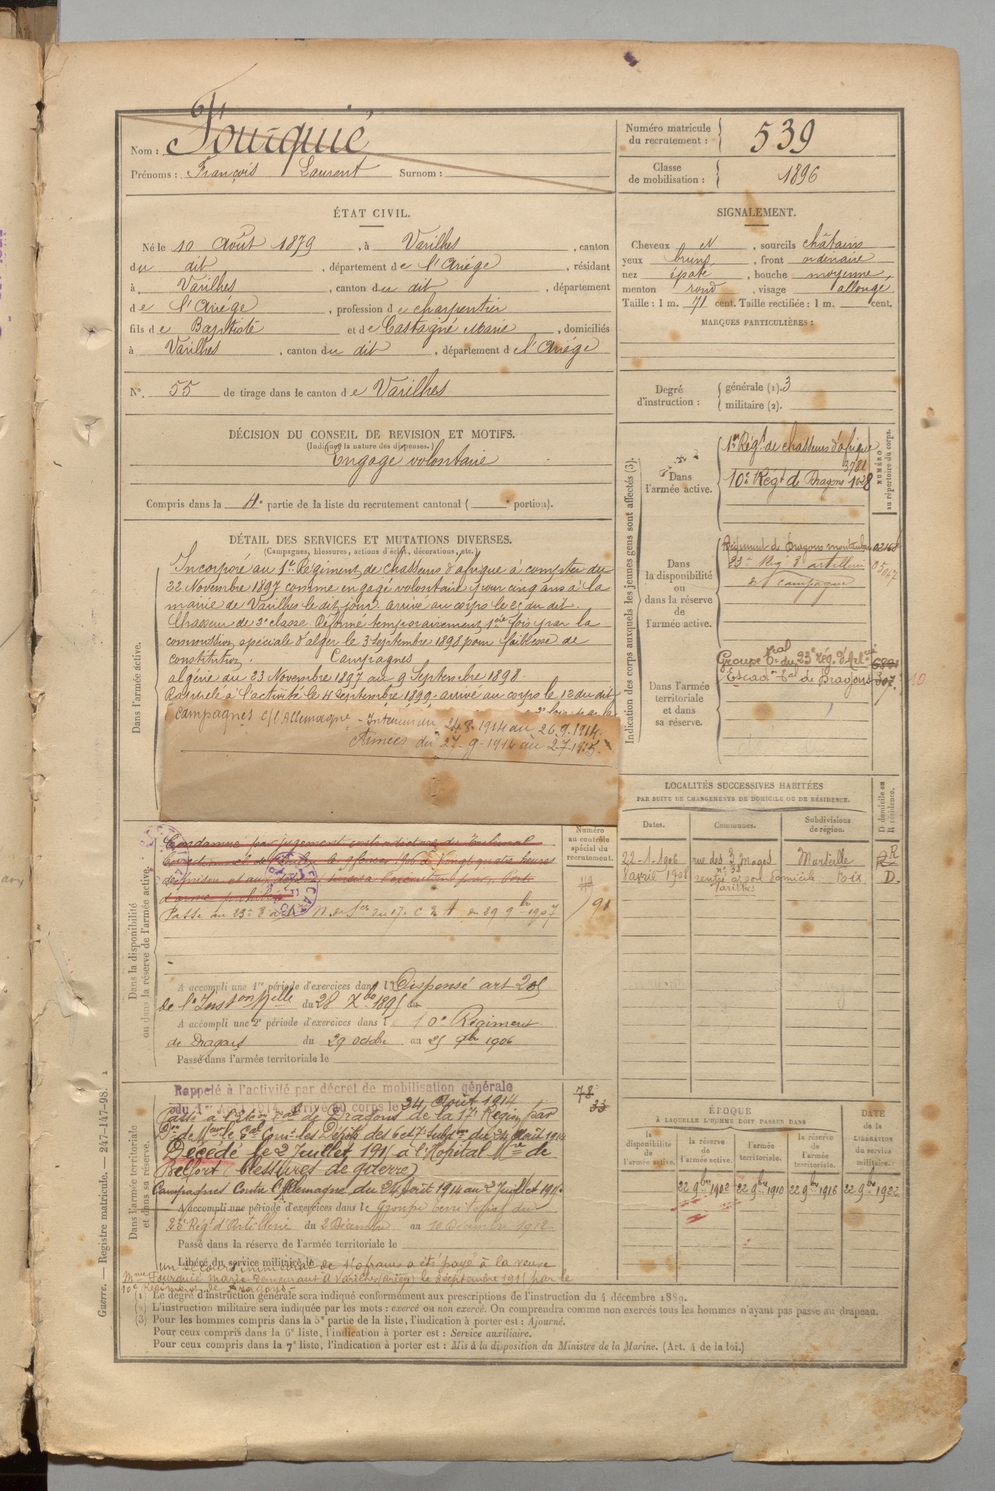 Nom : Fourquié
Prénoms : François Laurent Surnom :
Numéro matricule du recrutement : 539
Classe de mobilisation : 1896
ÉTAT CIVIL.
Né le 10 Août 1879, à Varilhes, canton
du dit, département de l'Ariége, résidant
à Varilhes, canton du dit, département
de l'Ariége, profession de charpentier
fils de Baptiste et de Castagné Marie, domiciliés
à Varilhes, canton du dit, département de l'Ariége
N°. 55 de tirage dans le canton de Varilhes
SIGNALEMENT.
Cheveux et, sourcils châtains
yeux bruns, front ordinaire
nez épaté, bouche moyenne,
menton rond, visage allongé
Taille : 1 m. 71 cent. Taille rectifiée : 1 m. cent.
MARQUES PARTICULIÈRES :
Degré d'instruction : générale (1). 3
militaire (2).
DÉCISION DU CONSEIL DE REVISION ET MOTIFS.
(Indiquer la nature des dispenses.)
Engagé volontaire
Compris dans la 4e partie de la liste du recrutement cantonal ( e portion).
DÉTAIL DES SERVICES ET MUTATIONS DIVERSES.
(Campagnes, blessures, actions d'éclat, décorations, etc.)
Dans l'armée active.
Incorporé au 1er Régiment de chasseurs d'afrique à compter du
22 Novembre 1897 comme engagé volontaire pour cinq ans à la
mairie de Varilhes le dit jour. arrivé au corps le 25 du dit.
Chasseur de 2e classe. Réformé temporairement 1ere fois par la
commission spéciale d'alger le 3 septembre 1898 pour faiblesse de
constitution. Campagnes
algérie du 23 Novembre 1897 au 9 Septembre 1898.
Rappelé à l'activité le 4 Septembre 1899. arrivé au corps le 12 du dit
Campagnes C/ l'Allemagne - Intérieur du 24.8.1914 au 26.9.1914.
Armées du 27.9.1914 au 2.7.1915.
Indication des corps auxquels les jeunes gens sont affectés (3).
NUMÉRO au répertoire du corps.
Dans l'armée active.
1er Régt de chasseurs d'afrique
3781
10e Regt de Dragons 1028
Dans la disponibilité ou dans la réserve de l'armée active.
Régiment de Dragons montauban 02163
23e Régt d'artillerie
de campagne
Dans l'armée territoriale et dans sa réserve.
Groupe tal du 23e rég. d'Art
Escadn tal de Dragons 307. 10
LOCALITÉS SUCCESSIVES HABITÉES
PAR SUITE DE CHANGEMENTS DE DOMICILE OU DE RÉSIDENCE.
Dates. Communes. Subdivisions de région. D domicile ou R résidence.
22-1-1906 rue des 3 Mages Marseille R
N° 33
8 avril 1908 rentré à son domicile Foix D.
Varilhes
Numéro au contrôle spécial du recrutement.
Dans la disponibilité ou dans la réserve de l'armée active.
Condamné par jugement contradictoire du Tribunal
Passé au 23e R d'
1907
91
A accompli une 1re période d'exercices dans l Dispensé art 205
de l'Inston Mlle du 28 Xbre 1895
A accompli une 2e période d'exercices dans le 10e Régiment
de Dragons du 29 octobre au 25 9bre 1906
Passé dans l'armée territoriale le
Dans l'armée territoriale et dans sa réserve.
Rappelé à l'activité par décret de mobilisation générale
du 1er Août 1914. Arrivé au corps le 24 Août 1914
Passé à l'Escon tal de Dragons de la 17e Région par
Don de Mr le Gal Comt les Dépôts des 6 et 7e Subons du 24 Août 1914
Décédé le 2 Juillet 1915 à l'Hopital Mre de
Belfort (blessures de guerre)
Campagnes Contre l'Allemagne du 24 Août 1914 au 2 Juillet 1915.
A accompli une période d'exercices dans le Groupe territorial du
23e Régt d'Artillerie du 2 Décembre au 10 Décembre 1912.
Passé dans la réserve de l'armée territoriale le
Libéré du service militaire le
un secours immédiat de 150 francs a été payé à la veuve
Mme Fourquié Marie demeurant à Varilhes (Ariége) le septembre 1915 par le
10e Régiment de Dragons.
78
33
ÉPOQUE
À LAQUELLE L'HOMME DOIT PASSER DANS
la disponibilité de l'armée active. la réserve de l'armée active. l'armée territoriale. la réserve de l'armée territoriale.
DATE de la LIBÉRATION du service militaire.
22 9bre 1910 22 9bre 1916 22 9bre 1922
(1) Le degré d'instruction générale sera indiqué conformément aux prescriptions de l'instruction du 4 décembre 1889.
(2) L'instruction militaire sera indiquée par les mots : exercé ou non exercé. On comprendra comme non exercés tous les hommes n'ayant pas passé au drapeau.
(3) Pour les hommes compris dans la 5e partie de la liste, l'indication à porter est : Ajourné.
Pour ceux compris dans la 6e liste, l'indication à porter est : Service auxiliaire.
Pour ceux compris dans la 7e liste, l'indication à porter est : Mis à la disposition du Ministre de la Marine. (Art. 4 de la loi.)
Guerre. — Registre matricule. — 247-147-98.